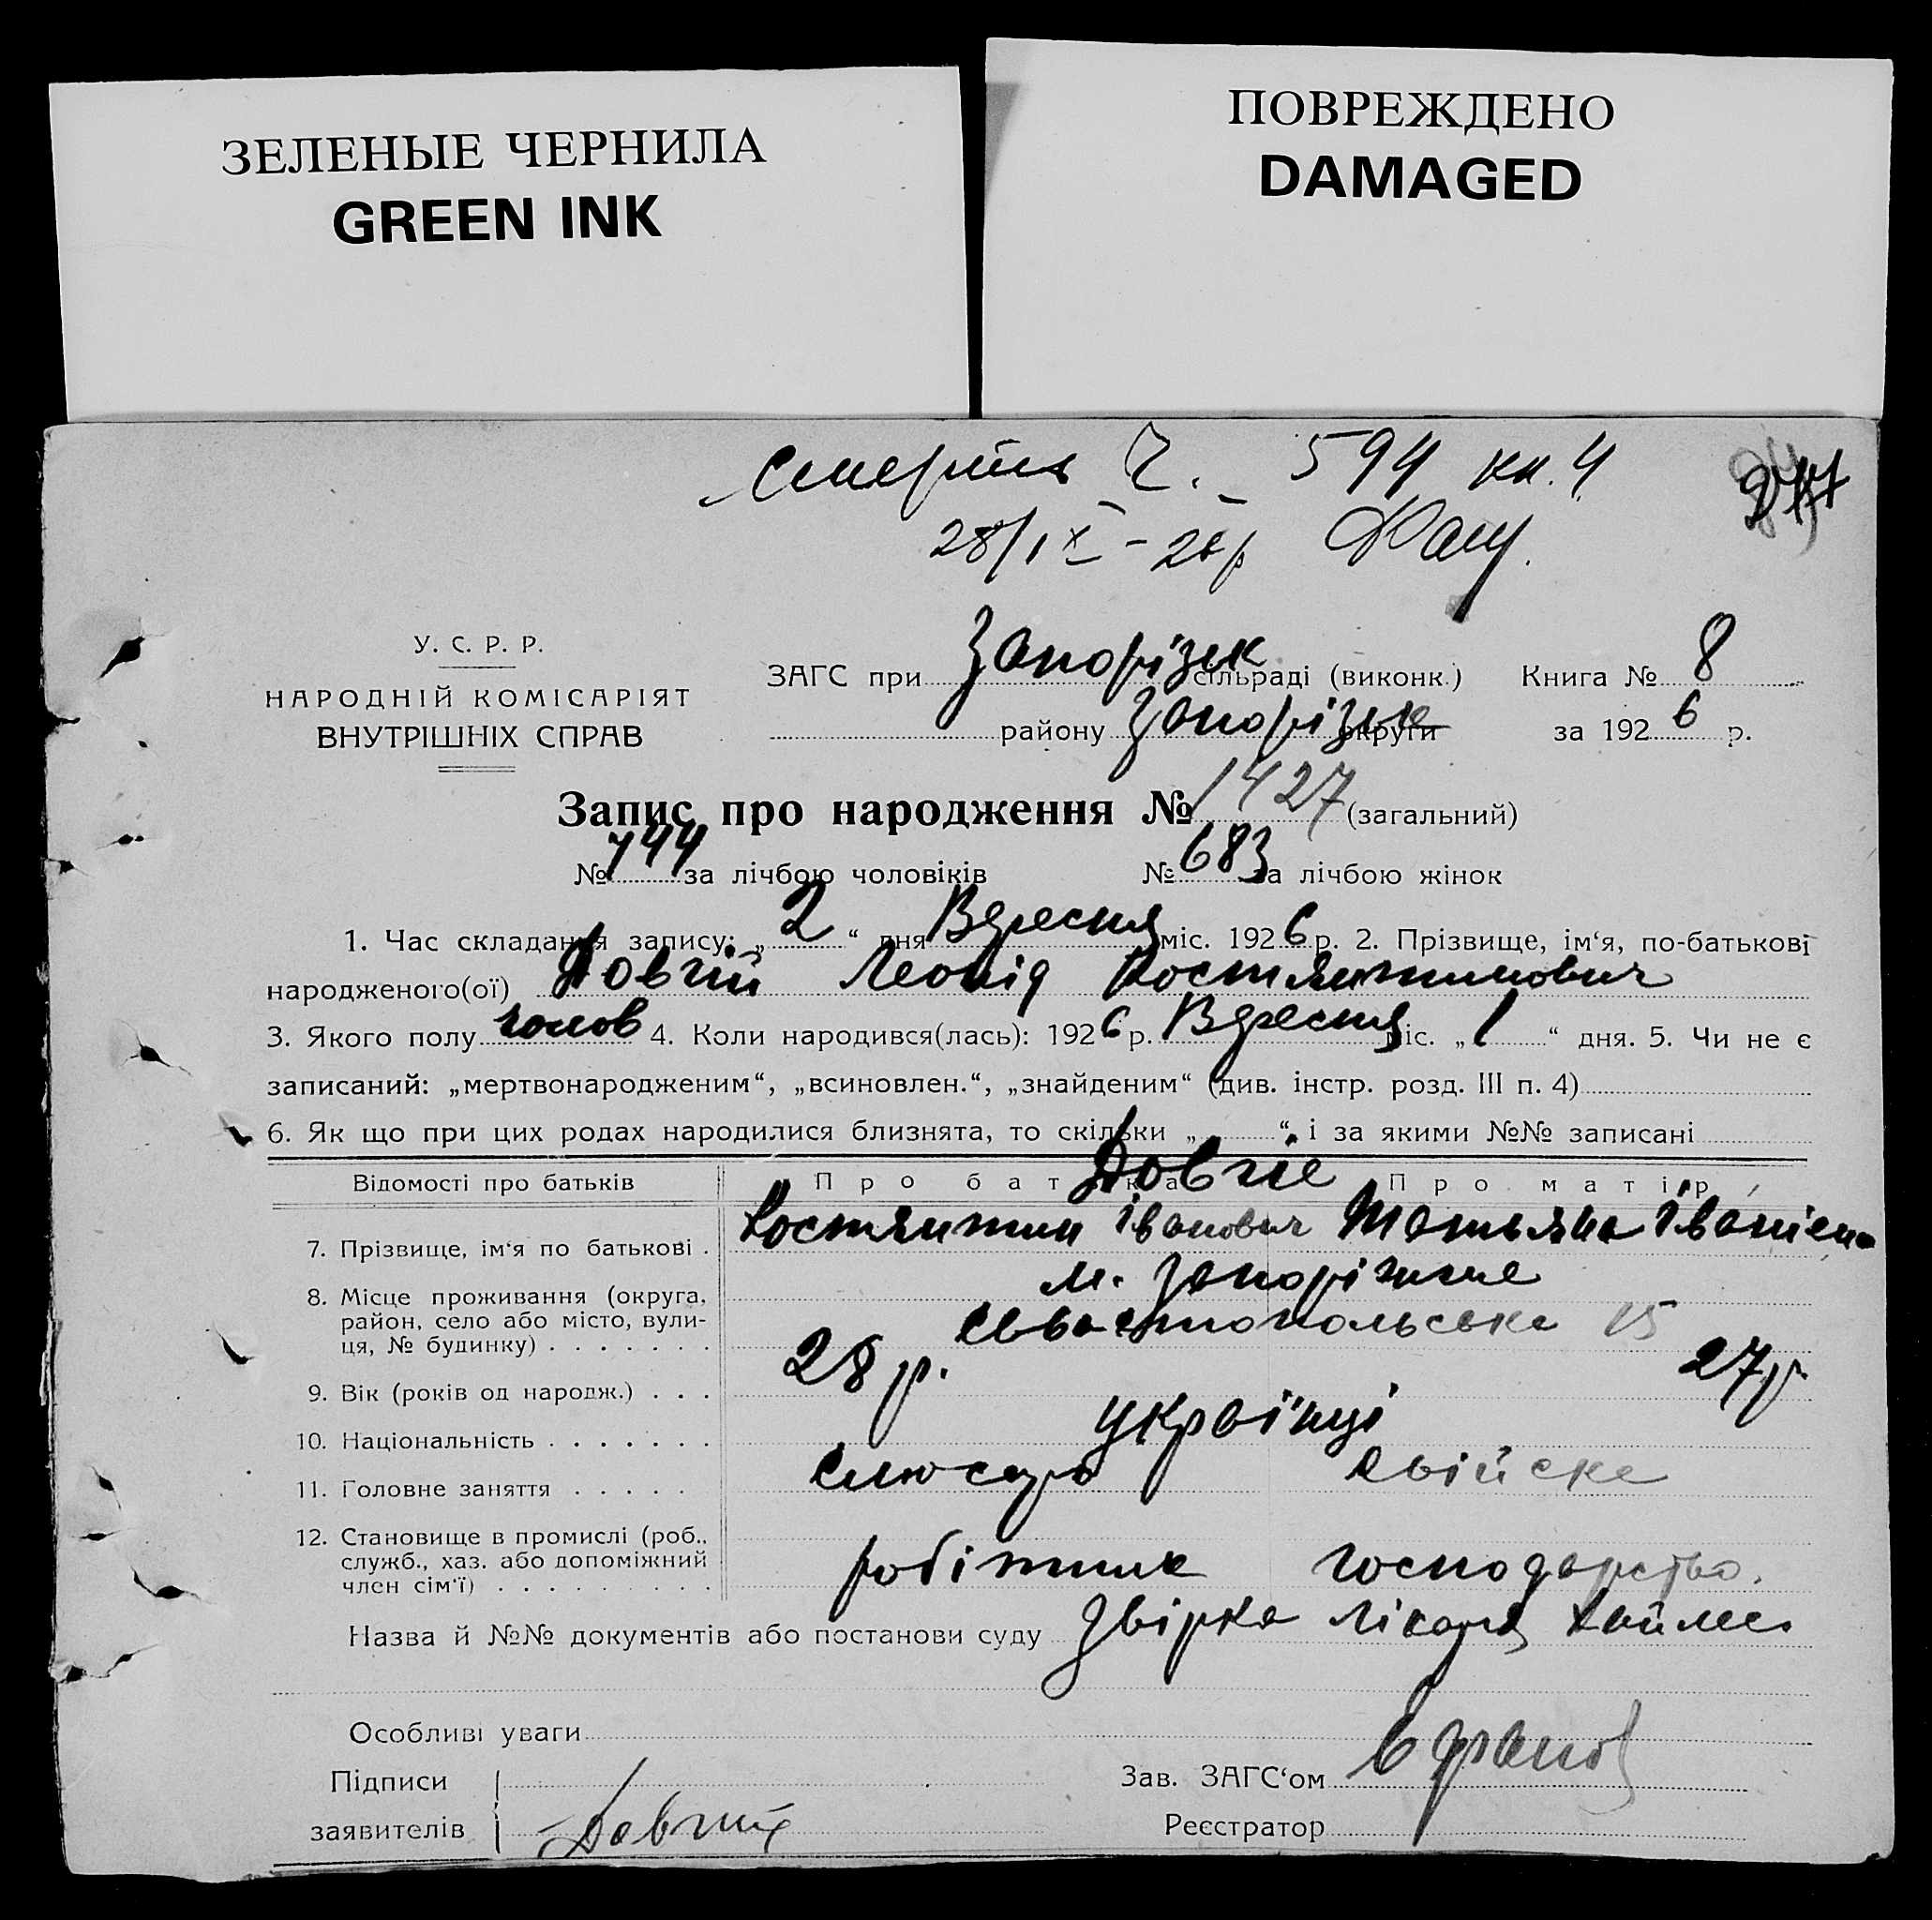 ЗЕЛЕНЫЕ ЧЕРНИЛА
GREEN INK
ПОВРЕЖДЕНО
DAMAGED
Смерть Ч. – 594 кн. 4
28/IX – 26 р
У. С. Р. Р.
НАРОДНІЙ КОМІСАРІЯТ
ВНУТРІШНІХ СПРАВ
ЗАГС при Запорізьк сільраді (виконк.) Книга № 8
району Запорізьк округи за 1926 р.
Запис про народження № 1427 (загальний)
№ 744 за лічбою чоловіків № 683 за лічбою жінок
1. Час складання запису: „ 2 “ дня Вересня міс. 1926 р. 2. Прізвище, ім‘я, по-батькові
народженого(ої) Довгий Леонід Костянтинович
3. Якого полу чолов 4. Коли народився(лась): 1926 р. Вересня міс. „ 1 “ дня. 5. Чи не є
записаний: „мертвонародженим“, „всиновлен.“, „знайденим“ (див. інстр. розд. III п. 4)
6. Як що при цих родах народилися близнята, то скільки „ “ і за якими №№ записані
Відомості про батьків Про батька Про матір
Довгіе
7. Прізвище, ім‘я по батькові . Костянтин Іванович Татьяна Іванівна
8. Місце проживання (округа, м. Запоріжжє
район, село або місто, вули-
ця, № будинку) . . . . . . . Севастопольська 15
9. Вік (років од народж.) . . . 28 р. 27 р.
10. Національність . . . . . . . українці
11. Головне заняття . . . . . слюсарь свійске
12. Становище в промислі (роб.,
служб., хаз. або допоміжний робітник господарство.
член сім‘ї) . . . . . . . . .
Назва й №№ документів або постанови суду Звірка лікаря
Особливі уваги
Підписи
заявителів Довгий
Зав. ЗАГС‘ом
Реєстратор